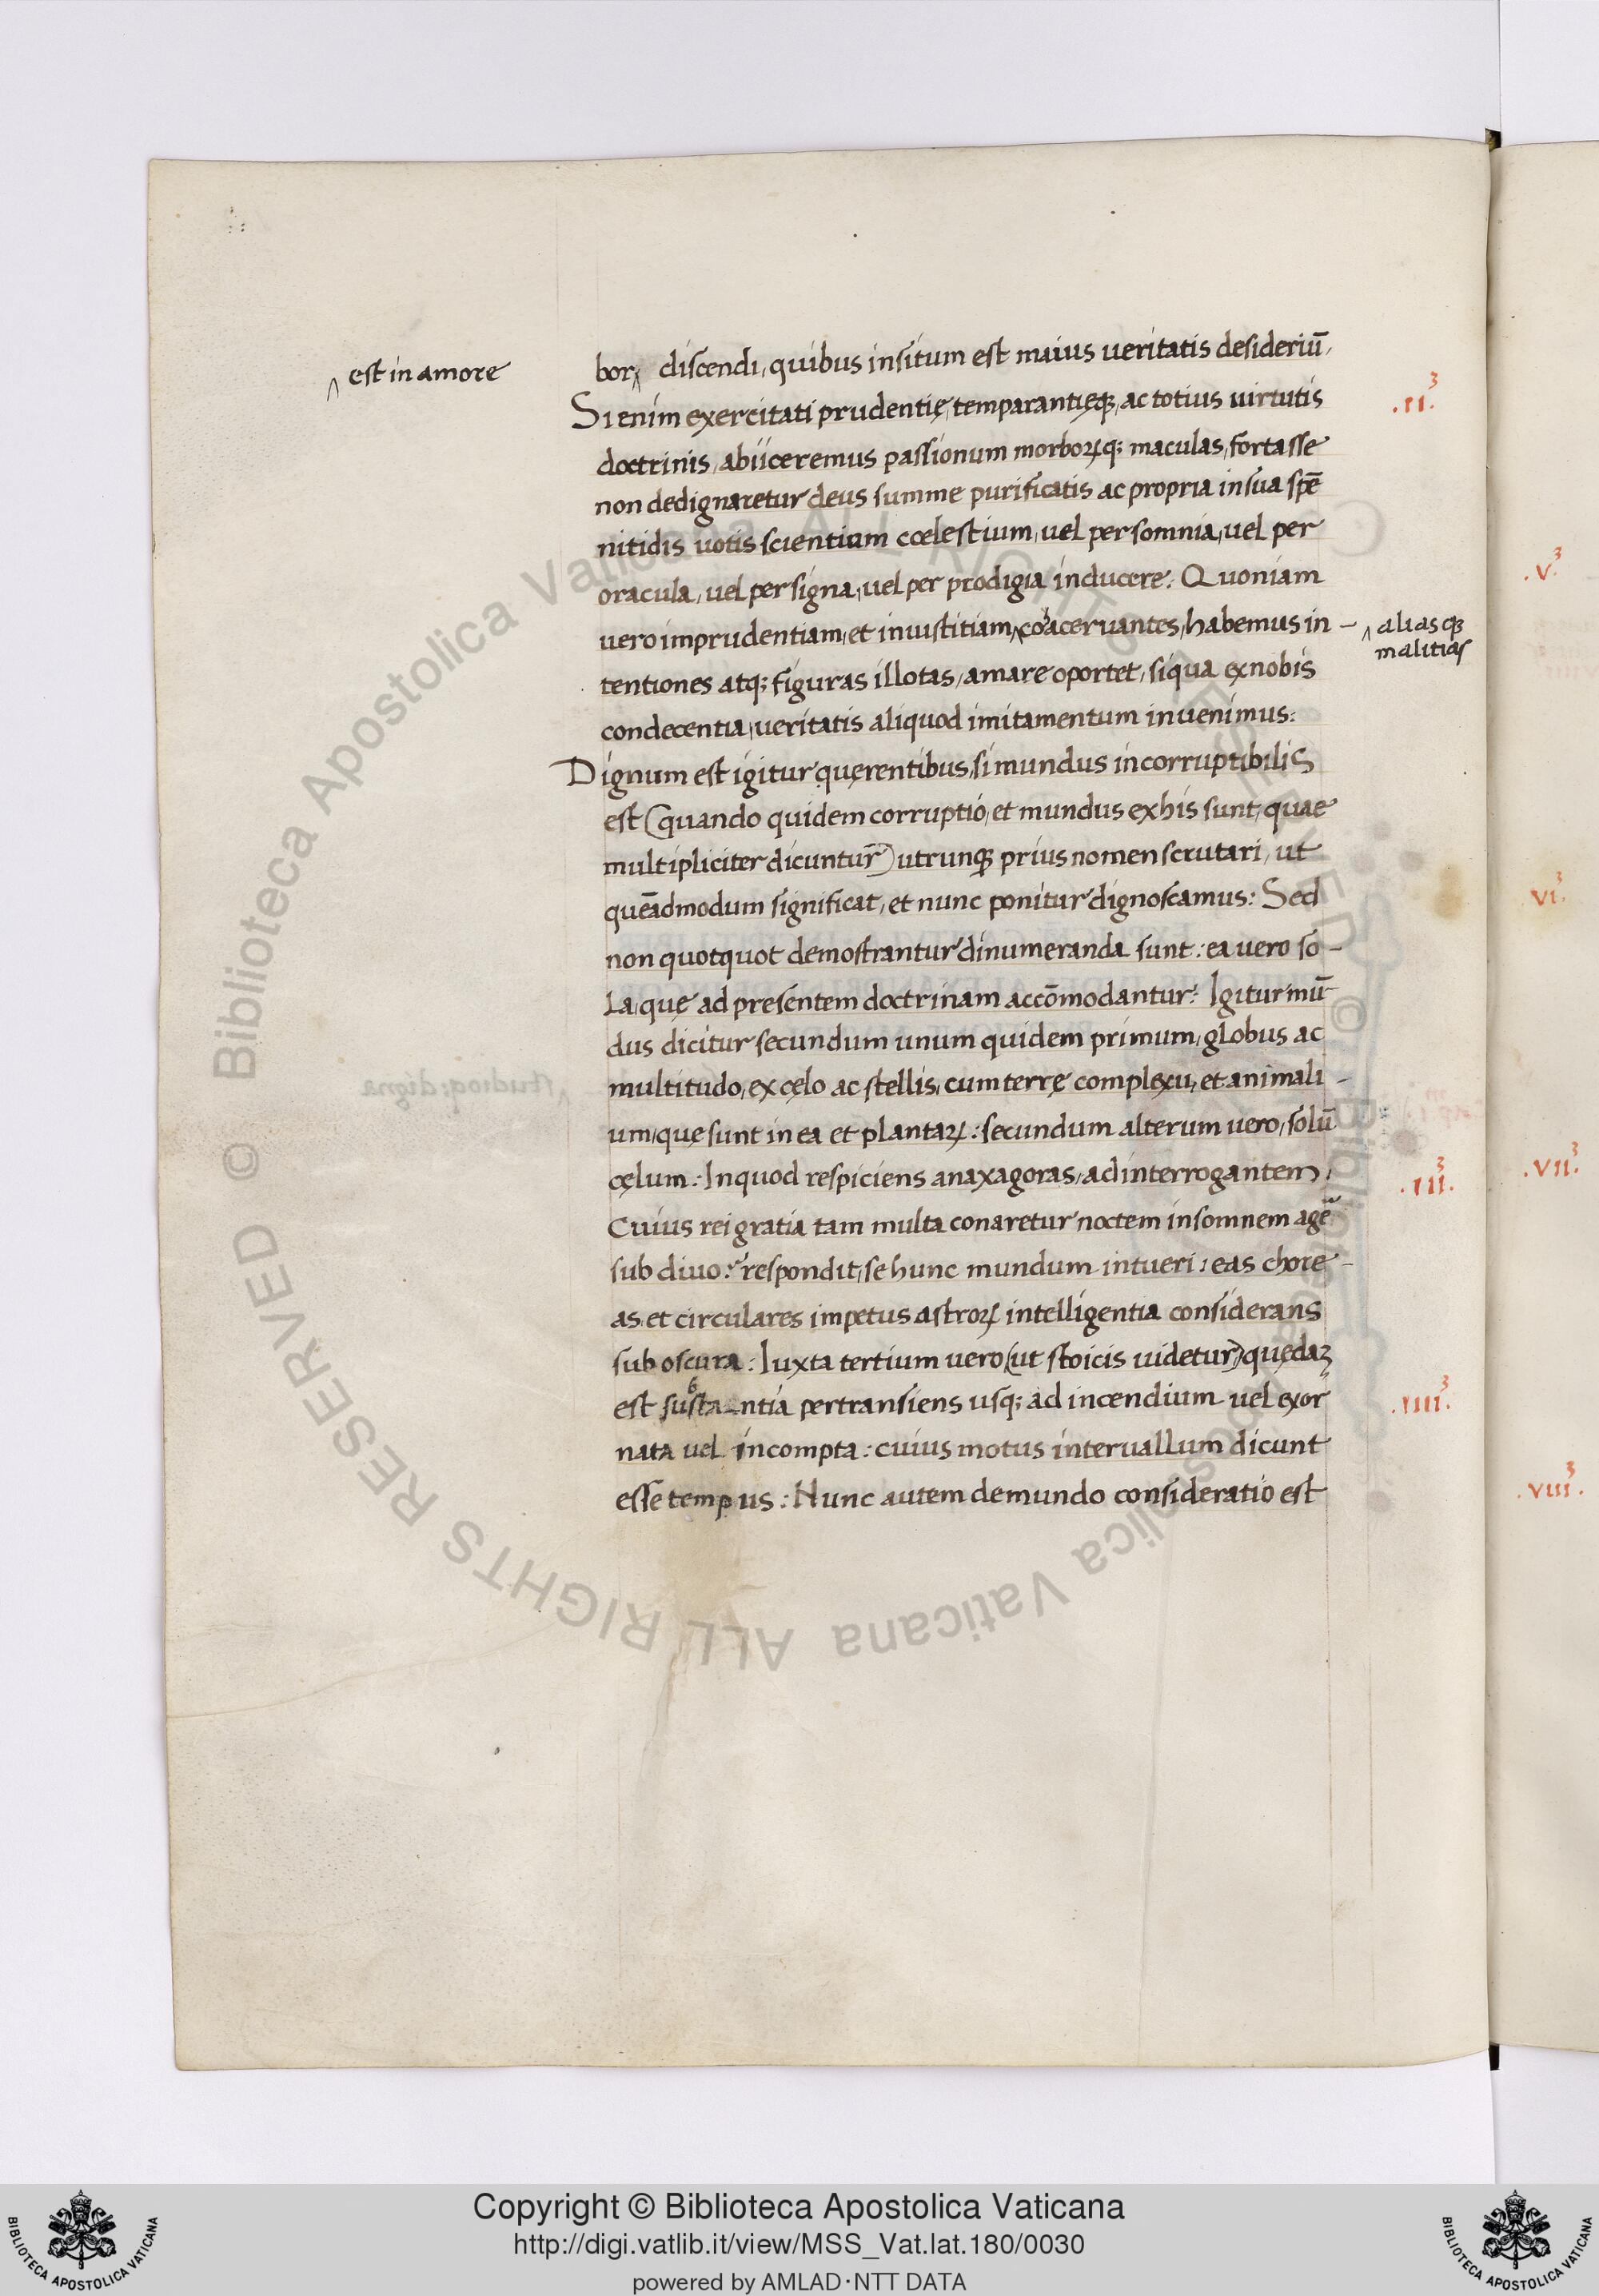 est in amore
bor discendi, quibus insitum est maius ueritatis desideriū,
.II.³
Si enim exercitati prudentię, temparantięqꝫ, ac totius uirtutis
doctrinis, abiiceremus passionum morboꝝqꝫ maculas, fortasse
non dedignaretur deus summe purificatis ac propria in sua spē
nitidis uotis scientium cœlestium, uel per somnia, uel per
oracula, uel per signa, uel per prodigia inducere: Quoniam
uero imprudentiam, et iniustitiam, coacervantes, habemus in-
alias qꝫ
malitias
tentiones atqꝫ figuras illotas, amare oportet, siqua ex nobis
condecentia, ueritatis aliquod imitamentum inuenimus:
Dignum est igitur quęrentibus, si mundus incorruptibilis
est (quando quidem corruptio, et mundus ex his sunt, quae
multipliciter dicuntur) utrunqꝫ prius nomen scrutari, ut
quēadmodum significat, et nunc ponitur dignoscamus: Sed
non quotquot demostrantur dinumeranda sunt: ea uero so-
la, quę ad presentem doctrinam accōmodantur: Igitur mū-
dus dicitur secundum unum quidem primum, globus ac
multitudo, ex cęlo ac stellis, cum terrę complexu, et animali-
um, quę sunt in ea et plantaꝝ: secundum alterum uero, solū
cęlum: In quod respiciens anaxagoras, ad interrogantem,
.III.³
Cuius rei gratia tam multa conaretur noctem insomnem agē
sub diuo: respondit, se hunc mundum intueri: eas chore-
as et circulares impetus astroꝝ intelligentia considerans
sub oscura: Iuxta tertium uero (ut stoicis uidetur) quędaꝫ
est substantia pertransiens usqꝫ ad incendium uel exor
.IIII.³
nata uel incompta: cuius motus interuallum dicunt
esse tempus: Nunc autem de mundo consideratio est
.V.³
VI.³
.VII.³
.VIII.³
Copyright © Biblioteca Apostolica Vaticana
http://digi.vatlib.it/view/MSS_Vat.lat.180/0030
powered by AMLAD·NTT DATA
BIBLIOTECA APOSTOLICA VATICANA
BIBLIOTECA APOSTOLICA VATICANA
© Biblioteca Apostolica Vaticana ALL RIGHTS RESERVED